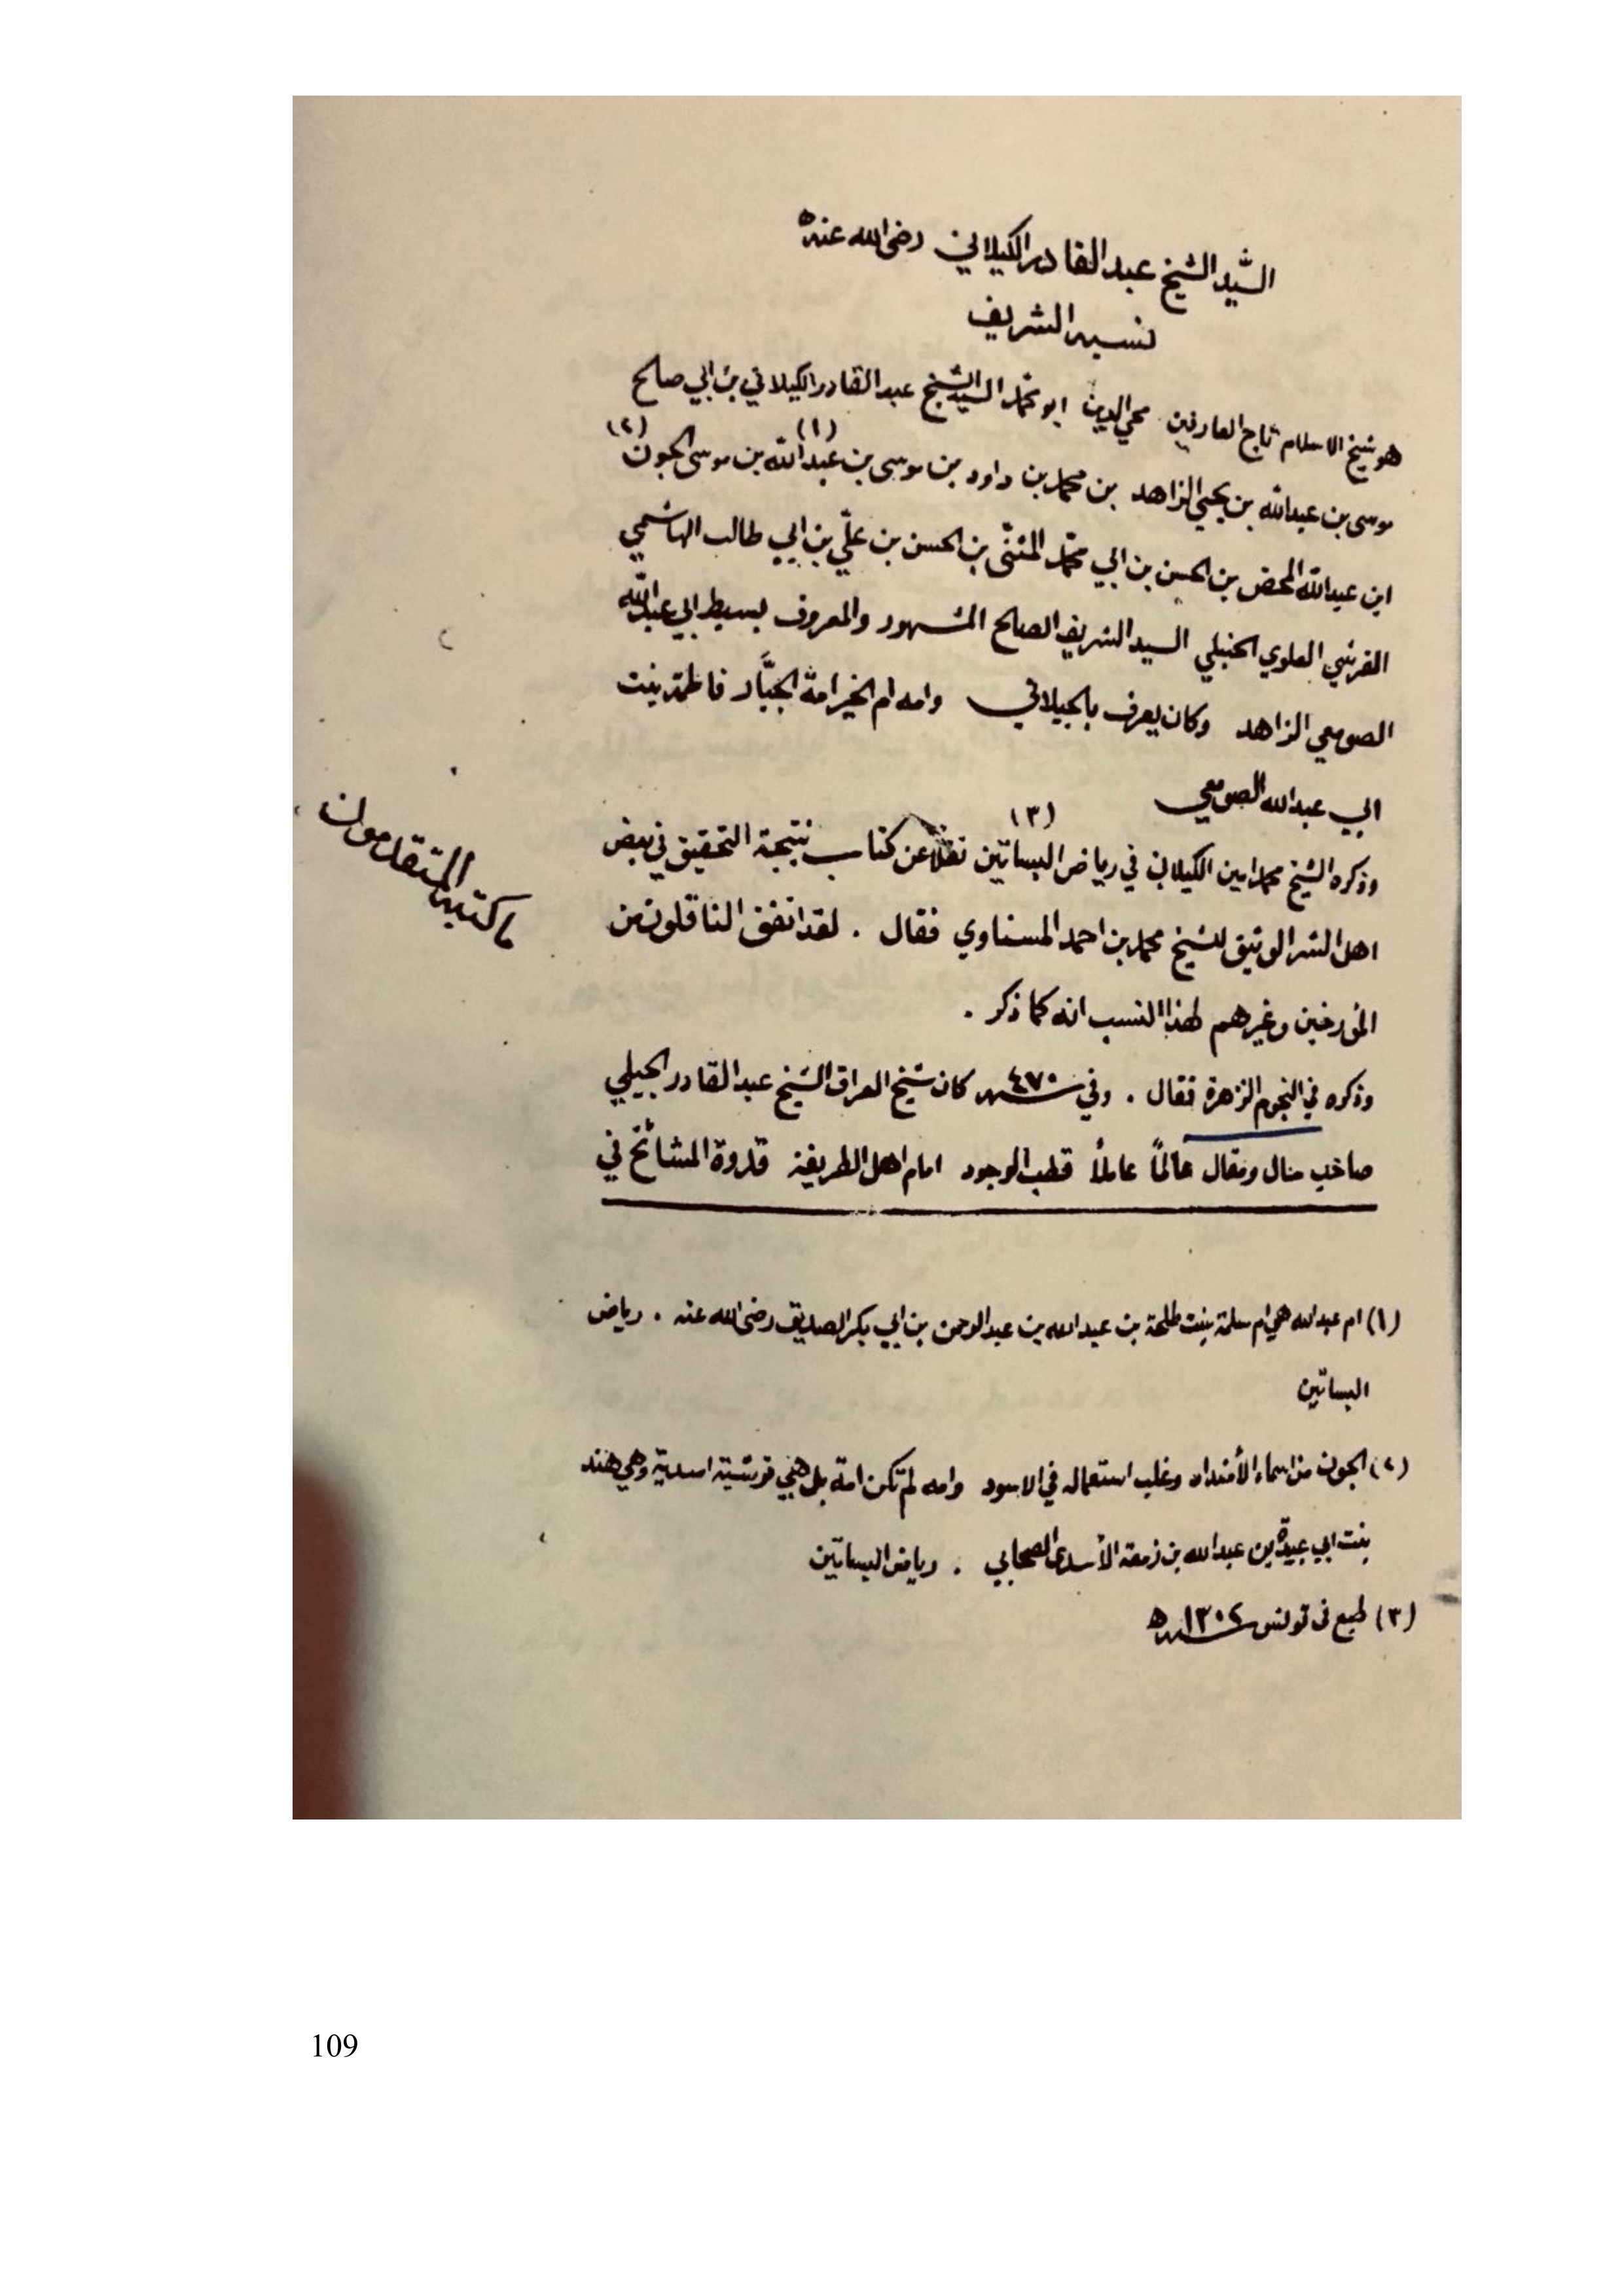 السَّيد الشيخ عبد القادر الكيلاني رضى الله عنه
نسبه الشريف
هو شيخ الاسلام تاج العارفين محي الدين ابو محمد السيد الشيخ عبد القادر الكيلاني بن ابي صالح
(١) (٢)
موسى بن عبدالله بن يحيى الزاهد بن محمد بن داود بن موسى بن عبدالله بن موسى الجون
ابن عبدالله المحض بن الحسن بن ابي محمد المثنى بن الحسن بن علي بن ابي طالب الهاشمي
القرشي العلوي الحنبلي السيد الشريف الصالح المشهور والمعروف بسبط ابي عبدالله
الصومعي الزاهد وكان يعرف بالجيلاني وامه ام الخير امة الجبَّار فاطمة بنت
ابي عبدالله الصومعي
(٣)
وذكره الشيخ محمد امين الكيلاني في رياض البساتين نقلاً عن كتاب نتيجة التحقيق في بعض
ما كتبه المتقدمون
اهل الشر الوثيق للشيخ محمد بن احمد المسناوي فقال . لقد اتفق الناقلون من
المؤرخين وغيرهم لهذا النسب انه كما ذكر .
وذكره في النجوم الزهرة فقال . وفي سنة ٤٧٠ كان شيخ العراق الشيخ عبد القادر الجيلي
صاحب منال ومقال عالماً عاملاً قطب الوجود امام اهل الطريقة قدوة المشائخ في
(١) ام عبدالله هي ام سلمة بنت طلحة بن عبدالله بن عبدالرحمن بن ابي بكر الصديق رضى الله عنه . رياض
البساتين
(٢) الجون من اسماء الأضداد وغلب استعماله في الاسود وامه لم تكن امة بل هي قرشية اسدية وهي هند
بنت ابي عبيدة بن عبدالله بن زمعة الأسدى الصحابي . رياض البساتين
(٣) طبع فى تونس سنة ١٣٠٤ ه
109